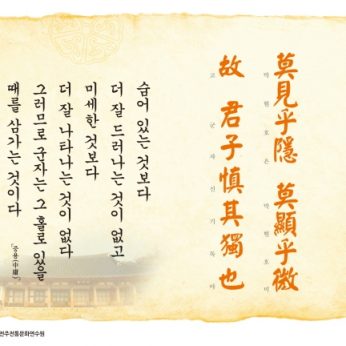 莫見乎隱 莫顯乎微
막 현 호 은 막 현 호 미
故 君子慎其獨也
고 군 자 신 기 독 야
숨어 있는 것보다
더 잘 드러나는 것이 없고
미세한 것보다
더 잘 나타나는 것이 없다
그러므로 군자는 그 홀로 있을
때를 삼가는 것이다
「중용(中庸)」
전주전통문화연수원